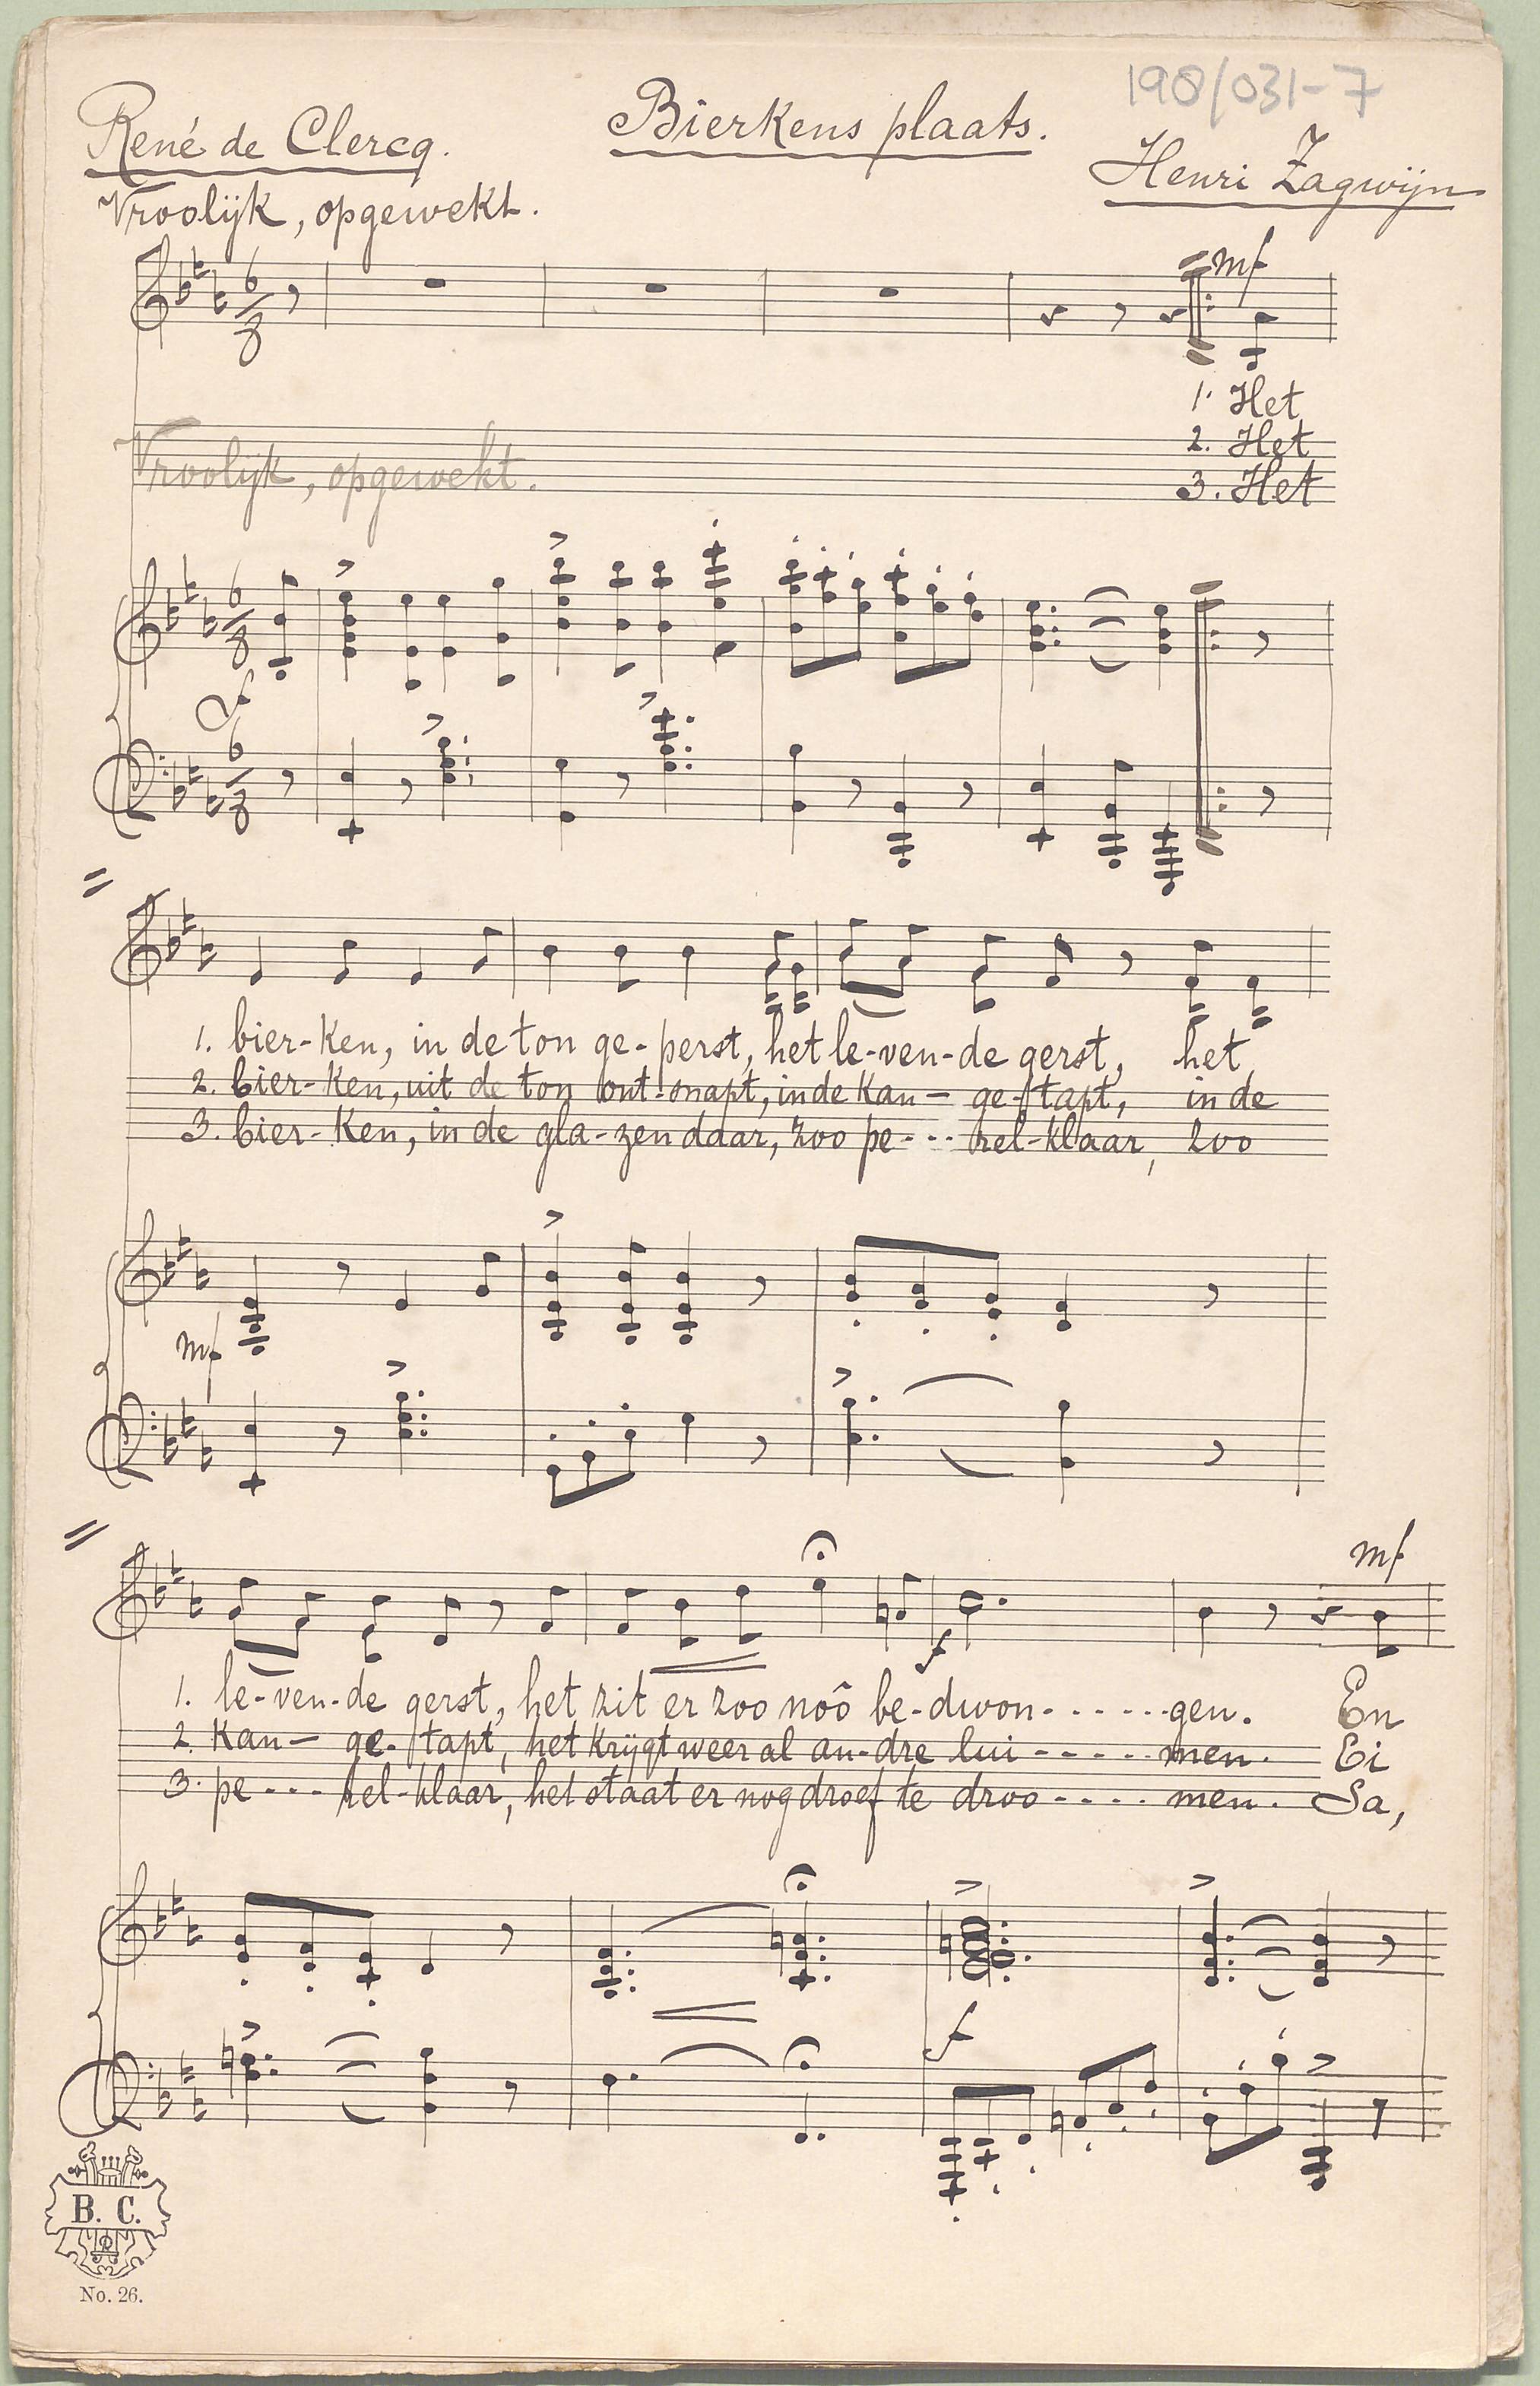 190/031-7
René de Clercq.
Bierkens plaats.
Henri Zagwijn
Vroolijk, opgewekt.
mf
1. Het
2. Het
3. Het
Vroolijk, opgewekt.
f
1. bier-ken, in de ton ge-perst, het le-ven-de gerst, het
2. bier-ken, uit de ton ont-snapt, in de kan- ge-tapt, in de
3. bier-ken, in de gla-zen daar, zoo pe---rel-klaar, zoo
mf
mf
f
1. le-ven-de gerst, het zit er zoo noô be-dwon------gen. En
2. kan- ge-tapt, het krijgt weer al an-dre lui-----men. Ei
3. pe---rel-klaar, het staat er nog droef te droo----men. Sa,
f
B. C.
No. 26.